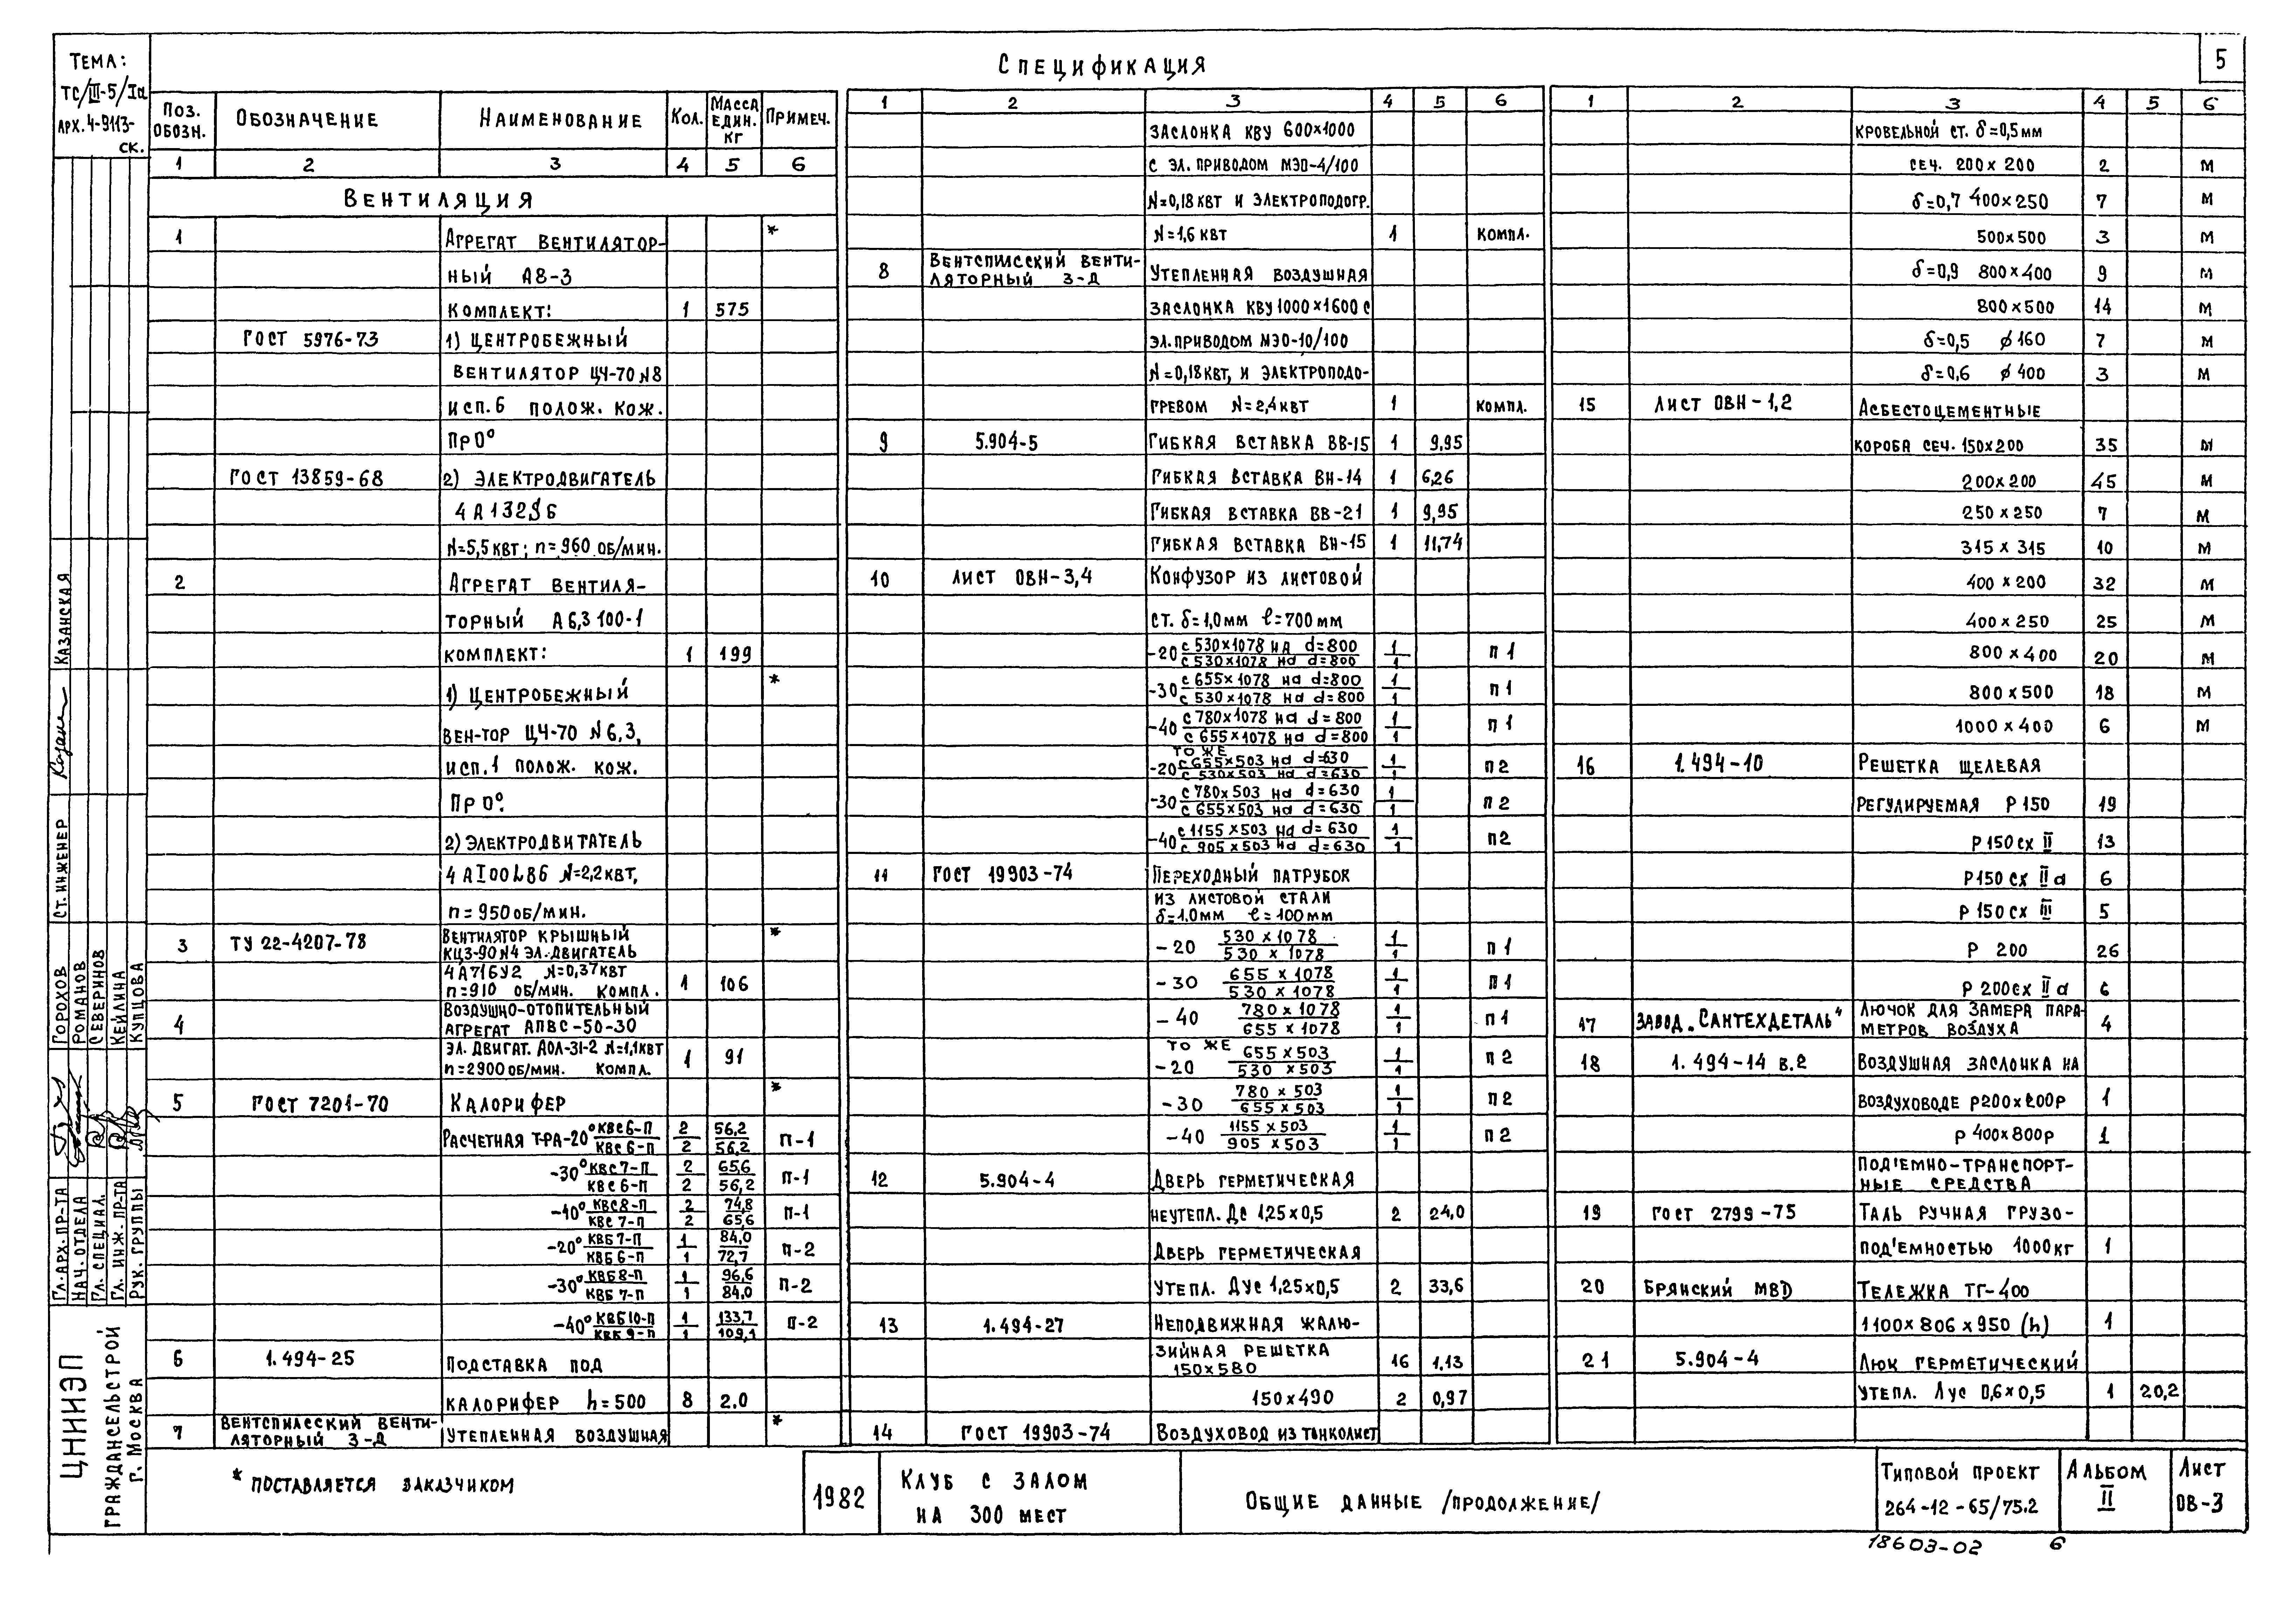 Спецификация
5
Тема:
ТС/III-5/Iа
арх. 4-9113-
ск.
Поз. обозн. Обозначение Наименование Кол. Масса един. кг Примеч.
1 2 3 4 5 6
Вентиляция
1 Агрегат вентилятор- *
ный А8-3
комплект: 1 575
ГОСТ 5976-73 1) центробежный
вентилятор Ц4-70 №8
исп. 6 полож. кож.
Пр0°
ГОСТ 13859-68 2) электродвигатель
4А132S6
N=5,5 квт; n=960 об/мин.
2 Агрегат вентиля-
торный А6,3 100-1
комплект: 1 199
1) центробежный *
вен-тор Ц4-70 №6,3,
исп. 1 полож. кож.
Пр0°.
2) электродвигатель
4АI00L86 N=2,2 квт,
n=950 об/мин.
3 ТУ 22-4207-78 Вентилятор крышный *
КЦ3-90 №4 эл. двигатель
4А71БУ2 N=0,37 квт
n=910 об/мин. компл. 1 106
4 Воздушно-отопительный
агрегат АПВС-50-30
эл. двигат. АОЛ-31-2 N=1,1 квт
n=2900 об/мин. компл. 1 91
5 ГОСТ 7201-70 Калорифер *
расчетная т-ра -20° КВС6-П/КВС6-П 2/2 56,2/56,2 П-1
-30° КВС7-П/КВС6-П 2/2 65,6/56,2 П-1
-40° КВС8-П/КВС7-П 2/2 74,8/65,6 П-1
-20° КВБ7-П/КВБ6-П 1/1 84,0/72,7 П-2
-30° КВБ8-П/КВБ7-П 1/1 96,6/84,0 П-2
-40° КВБ10-П/КВБ9-П 1/1 133,7/109,1 П-2
6 1.494-25 Подставка под
калорифер h=500 8 2.0
7 Вентспилсский венти-
ляторный з-д Утепленная воздушная *
1 2 3 4 5 6
заслонка КВУ 600×1000
с эл. приводом МЭО-4/100
N=0,18 квт и электроподогр.
N=1,6 квт 1 компл.
8 Вентспилсский венти-
ляторный з-д Утепленная воздушная
заслонка КВУ 1000×1600 с
эл. приводом МЭО-10/100
N=0,18 квт, и электроподо-
гревом N=2,4 квт 1 компл.
9 5.904-5 Гибкая вставка ВВ-15 1 9,95
Гибкая вставка ВН-14 1 6,26
Гибкая вставка ВВ-21 1 9,95
Гибкая вставка ВН-15 1 11,74
10 Лист ОВН-3,4 Конфузор из листовой
ст. δ=1,0мм ℓ=700мм
-20 с 530×1078 на d=800/с 530×1078 на d=800 1/1 П1
-30 с 655×1078 на d=800/с 530×1078 на d=800 1/1 П1
-40 с 780×1078 на d=800/с 655×1078 на d=800 1/1 П1
то же
-20 с 655×503 на d=630/с 530×503 на d=630 1/1 П2
-30 с 780×503 на d=630/с 655×503 на d=630 1/1 П2
-40 с 1155×503 на d=630/с 905×503 на d=630 1/1 П2
11 ГОСТ 19903-74 Переходный патрубок
из листовой стали
δ=1.0мм ℓ=100мм
-20 530×1078/530×1078 1/1 П1
-30 655×1078/530×1078 1/1 П1
-40 780×1078/655×1078 1/1 П1
то же
-20 655×503/530×503 1/1 П2
-30 780×503/655×503 1/1 П2
-40 1155×503/905×503 1/1 П2
12 5.904-4 Дверь герметическая
неутепл. Дс 1,25×0,5 2 24,0
Дверь герметическая
утепл. ДУс 1,25×0,5 2 33,6
13 1.494-27 Неподвижная жалю-
зийная решетка
150×580 16 1,13
150×490 2 0,97
14 ГОСТ 19903-74 Воздуховод из тонколист
1 2 3 4 5 6
кровельной ст. δ=0,5мм
сеч. 200×200 2 м
δ=0,7 400×250 7 м
500×500 3 м
δ=0,9 800×400 9 м
800×500 14 м
δ=0,5 ϕ160 7 м
δ=0,6 ϕ400 3 м
15 Лист ОВН-1,2 Асбестоцементные
короба сеч. 150×200 35 м
200×200 45 м
250×250 7 м
315×315 10 м
400×200 32 м
400×250 25 м
800×400 20 м
800×500 18 м
1000×400 6 м
16 1.494-10 Решетка щелевая
регулируемая Р150 19
Р150 сх II 13
Р150 сх II а 6
Р150 сх III 5
Р 200 26
Р 200сх II а 6
17 завод „Сантехдеталь" Лючок для замера пара-
метров воздуха 4
18 1.494-14 в.2 Воздушная заслонка на
воздуховоде Р200×200Р 1
Р 400×800Р 1
Под'емно-транспорт-
ные средства
19 ГОСТ 2799-75 Таль ручная грузо-
под'емностью 1000кг 1
20 Брянский МВД Тележка ТГ-400
1100×806×950 (h) 1
21 5.904-4 Люк герметический
утепл. Лус 0,6×0,5 1 20,2
* поставляется заказчиком
1982
Клуб с залом
на 300 мест
Общие данные /продолжение/
Типовой проект
264-12-65/75.2
Альбом
II
Лист
ОВ-3
18603-02 6
ЦНИИЭП
граждансельстрой
г. Москва
Гл. арх. пр-та Горохов
Нач. отдела Романов
Гл. специал. Северинов
Гл. инж. пр-та Кейлина
Рук. группы Купцова
Ст. инженер Казанская